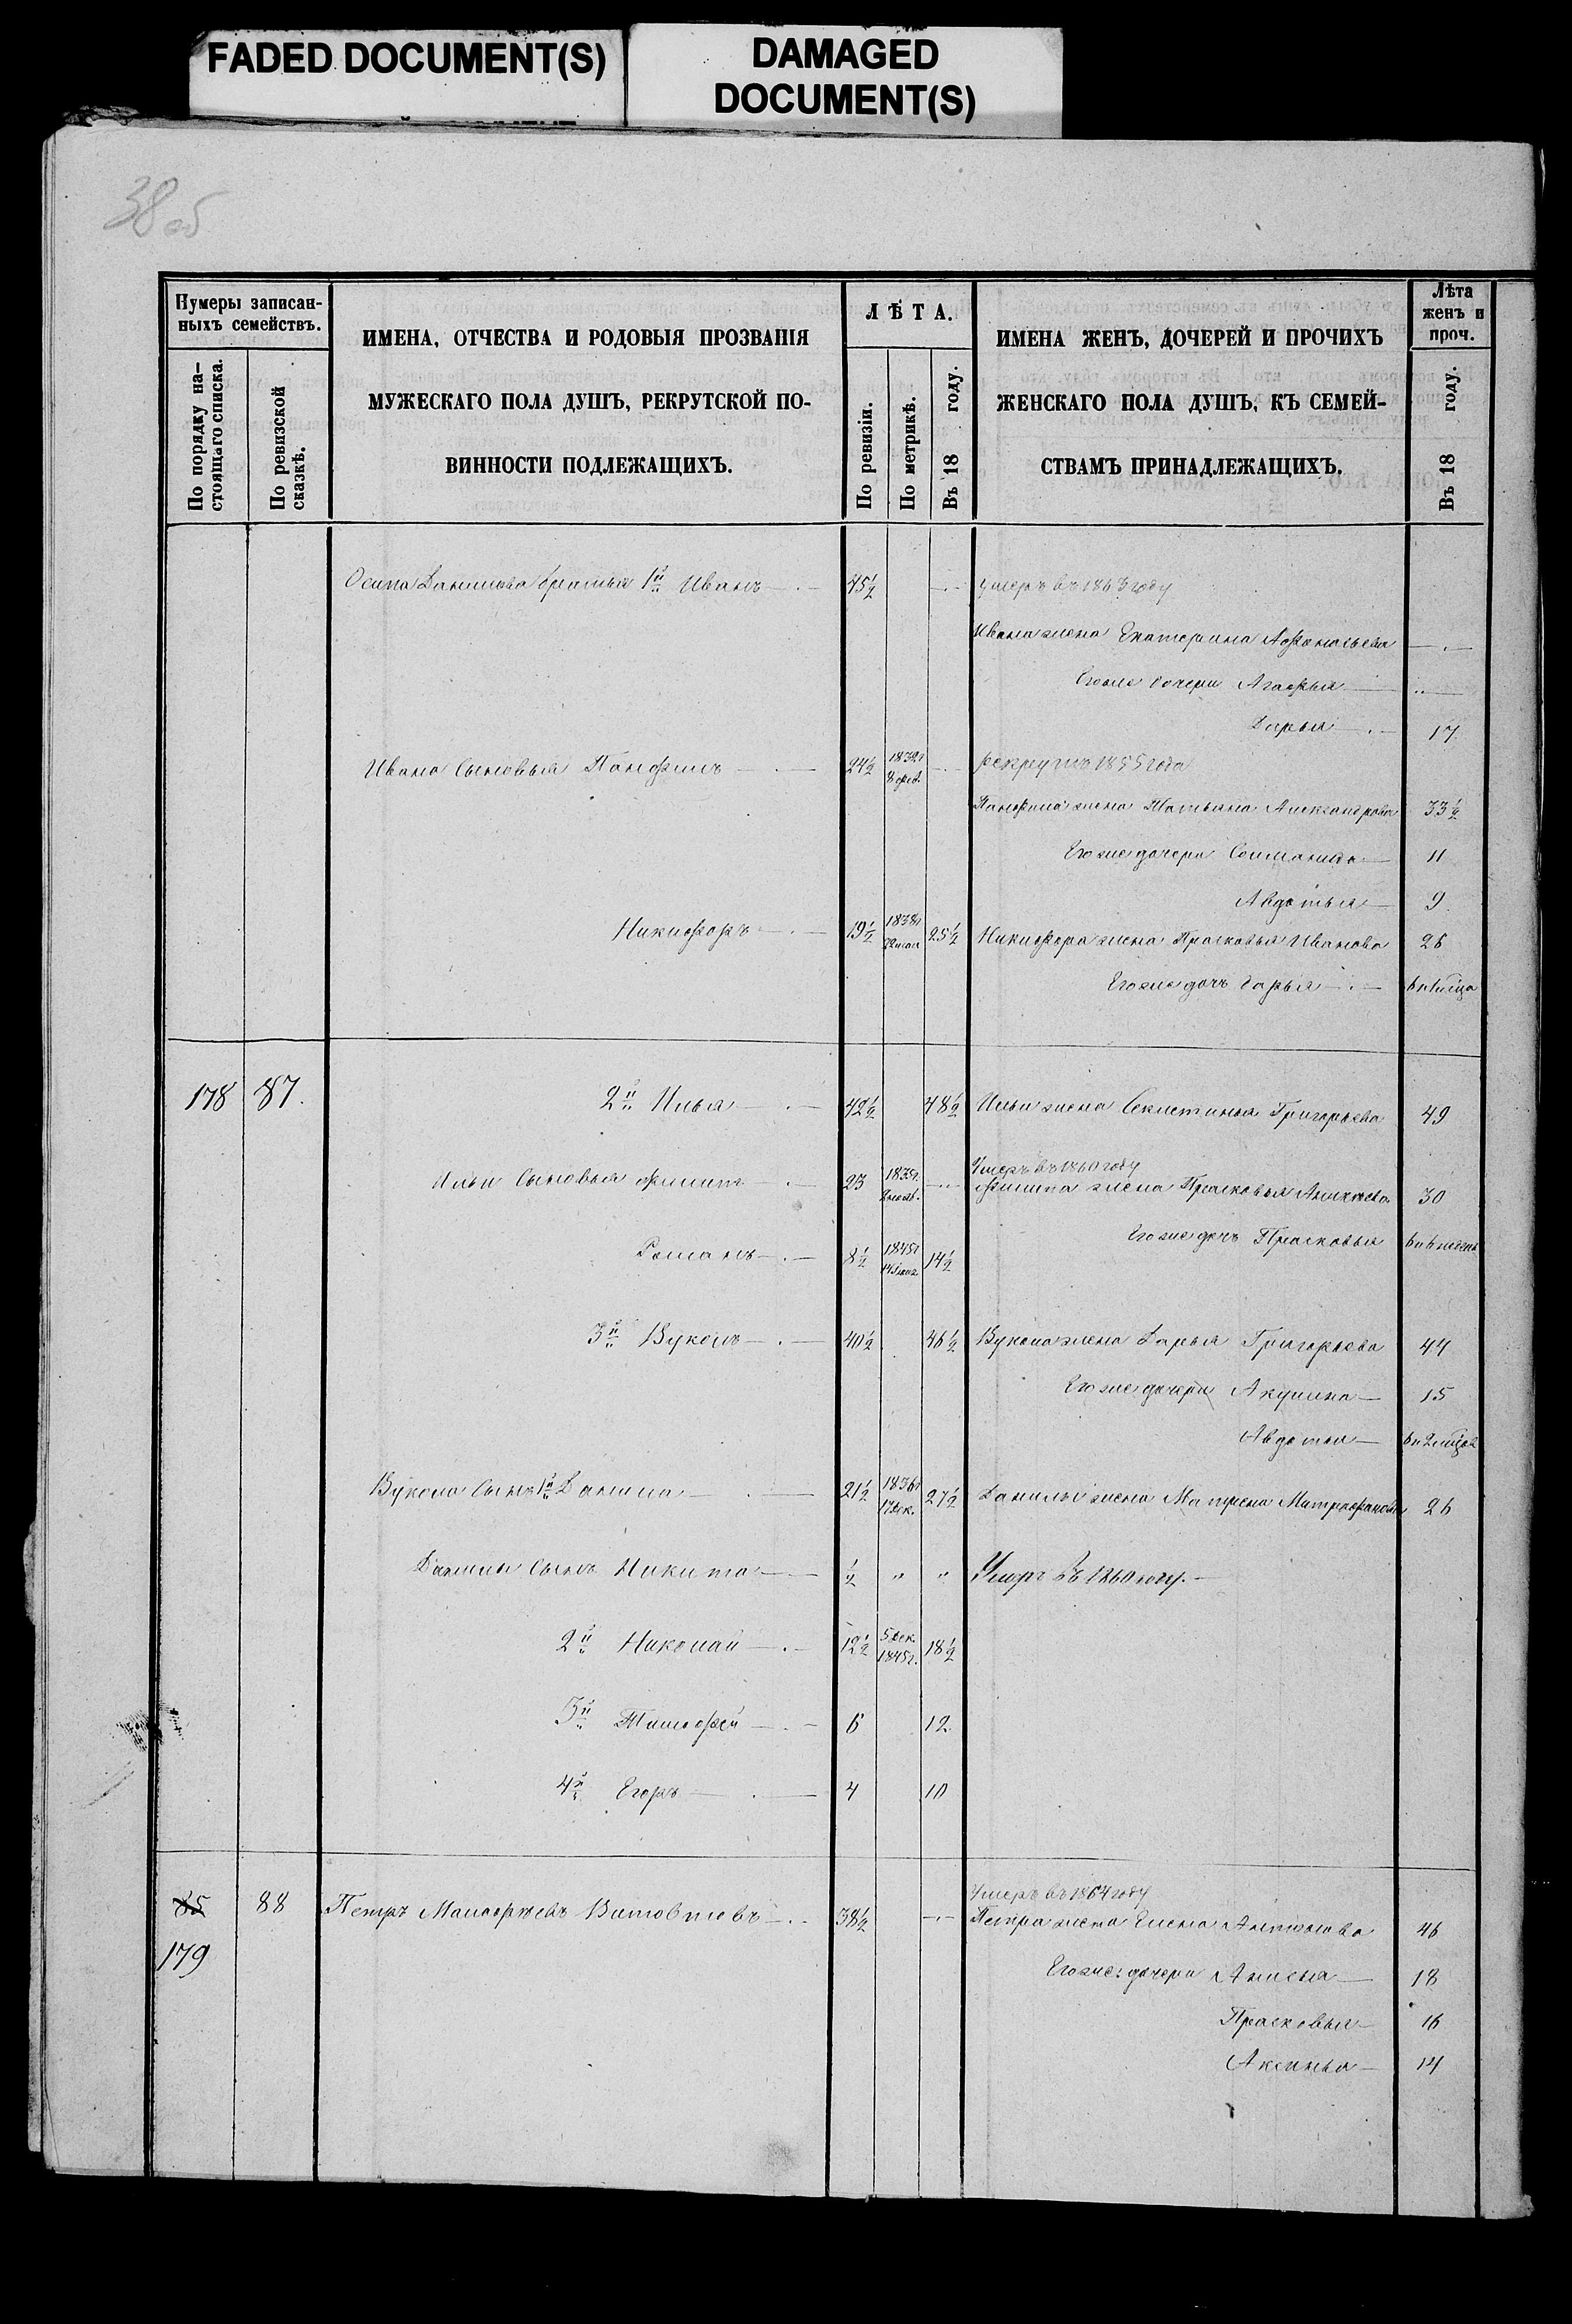 FADED DOCUMENT(S)
DAMAGED
DOCUMENT(S)
38 об
Нумеры записан-
ныхъ семействъ.
По порядку на-
стоящаго списка.
По ревизской
сказкѣ.
ИМЕНА, ОТЧЕСТВА И РОДОВЫЯ ПРОЗВАНІЯ
МУЖЕСКАГО ПОЛА ДУШЪ, РЕКРУТСКОЙ ПО-
ВИННОСТИ ПОДЛЕЖАЩИХЪ.
ЛѢТА.
По ревизіи.
По метрикѣ.
Въ 18 году.
ИМЕНА ЖЕНЪ, ДОЧЕРЕЙ И ПРОЧИХЪ
ЖЕНСКАГО ПОЛА ДУШЪ, КЪ СЕМЕЙ-
СТВАМЪ ПРИНАДЛЕЖАЩИХЪ.
Лѣта
женъ и
проч.
Въ 18 году.
Осипа Данилова братья 1й Иванъ 45½ умеръ въ 1863 году
Ивана жена Екатерина Афонасьева
Его же дочери Агафья
Дарья 17
Ивана сыновья Панфилъ 24½ 1832г 8 фев. рекрутъ 1855 года
Панфила жена Татьяна Александрова 33½
Его же дочери Соломанида 11
Авдотья 9
Никифоръ 19½ 1838г 25½ Никифора жена Прасковья Иванова 26
Его же дочь Дарья
178 87. 2й Илья 42½ 48½ Ильи жена Секлетинья Григорьева 49
Умеръ въ 1860 году
Ильи сыновья Филипъ 23 1835г. Филипа жена Прасковья 30
Его же дочь Прасковья
Романъ 8½ 14½
3й Вуколъ 40½ 46½ Вукола жена Дарья Григорьева 44
Его же дочери Акулина 15
Авдотья
Вукола сынъ 1й Данила 21½ 1836г 17 дек. 27½ Данилы жена Матрена Митрофанова 26
Данилы сынъ Никита ½ " " Умеръ въ 1860 году.
2й Николай 12½ 5 дек. 1845г. 18½
3й Тимофей 6 12
4й Егоръ 4 10
Умеръ въ 1864 году
85 88 Петръ 38½ Петра жена Елена Антонова 46
179
Его же дочери 18
Прасковья 16
Аксинья 14